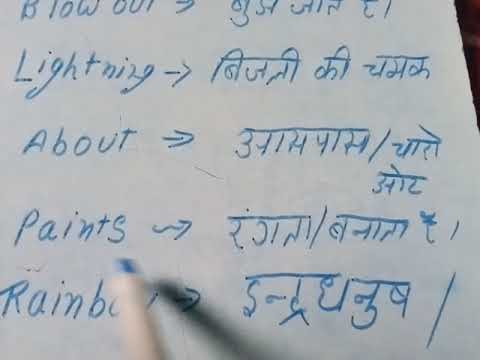 Blow out → बुझ जाते है।
Lightning → बिजली की चमक
About → आसपास/चारो
ओर
Paints → रंगता/बनाता है।
Rainbow → इन्द्रधनुष /